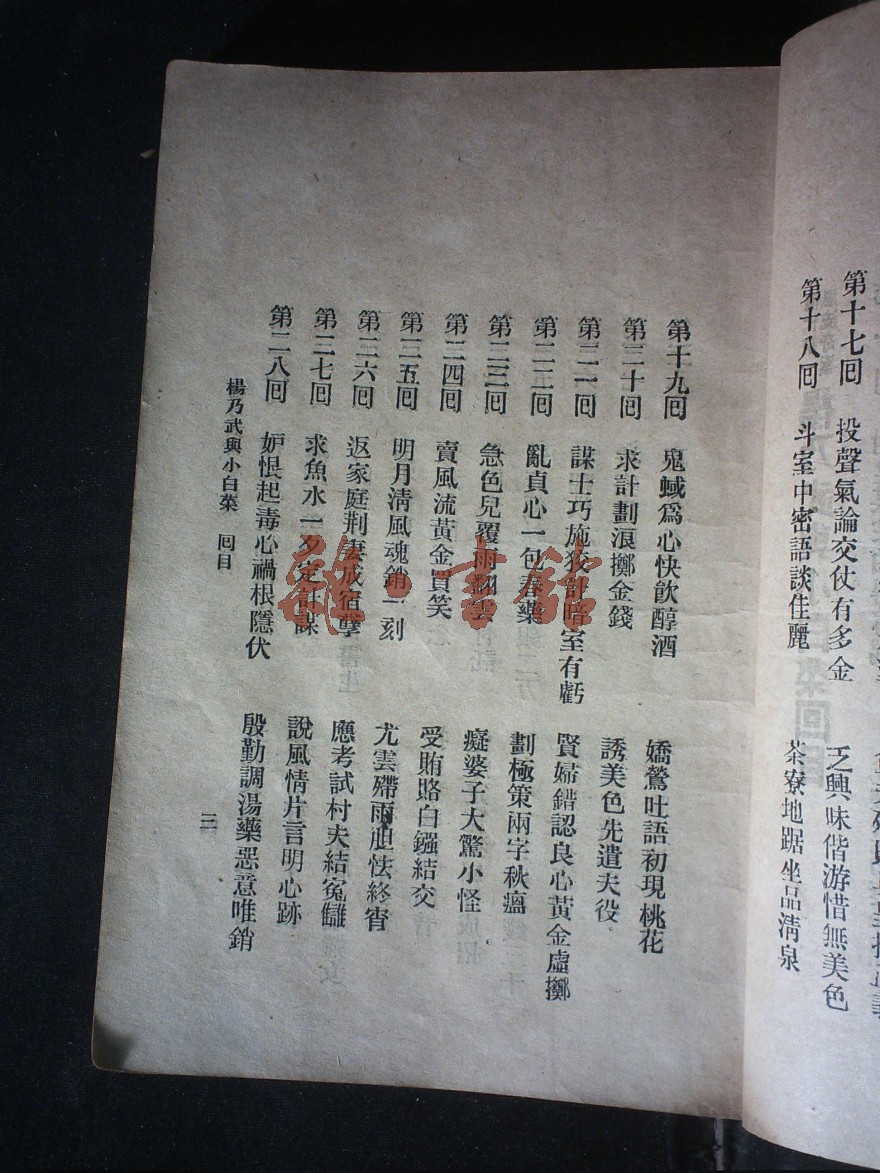 第十七回 投聲氣論交仗有多金 乏興味偕游惜無美色
第十八回 斗室中密語談佳麗 茶寮地踞坐品清泉
第十九回 鬼蜮爲心快飲醇酒 嬌鶯吐語初現桃花
第二十回 求計劃浪擲金錢 誘美色先遣夫役
第二一回 謀士巧施狡計暗室有虧 賢婦錯認良心黃金虛擲
第二二回 亂貞心一包春藥 劃極策兩字秋瘟
第二三回 急色兒覆雨翻雲 癡婆子大驚小怪
第二四回 賣風流黃金買笑 受賄賂白鏹結交
第二五回 明月清風魂銷一刻 尤雲殢雨胆怯終宵
第二六回 返家庭荆妻成宿孽 應考試村夫結寃讎
第二七回 求魚水一夕定計謀 說風情片言明心跡
第二八回 妒恨起毒心禍根隱伏 殷勤調湯藥惡意唯銷
楊乃武與小白菜 回目 三
雜·書館